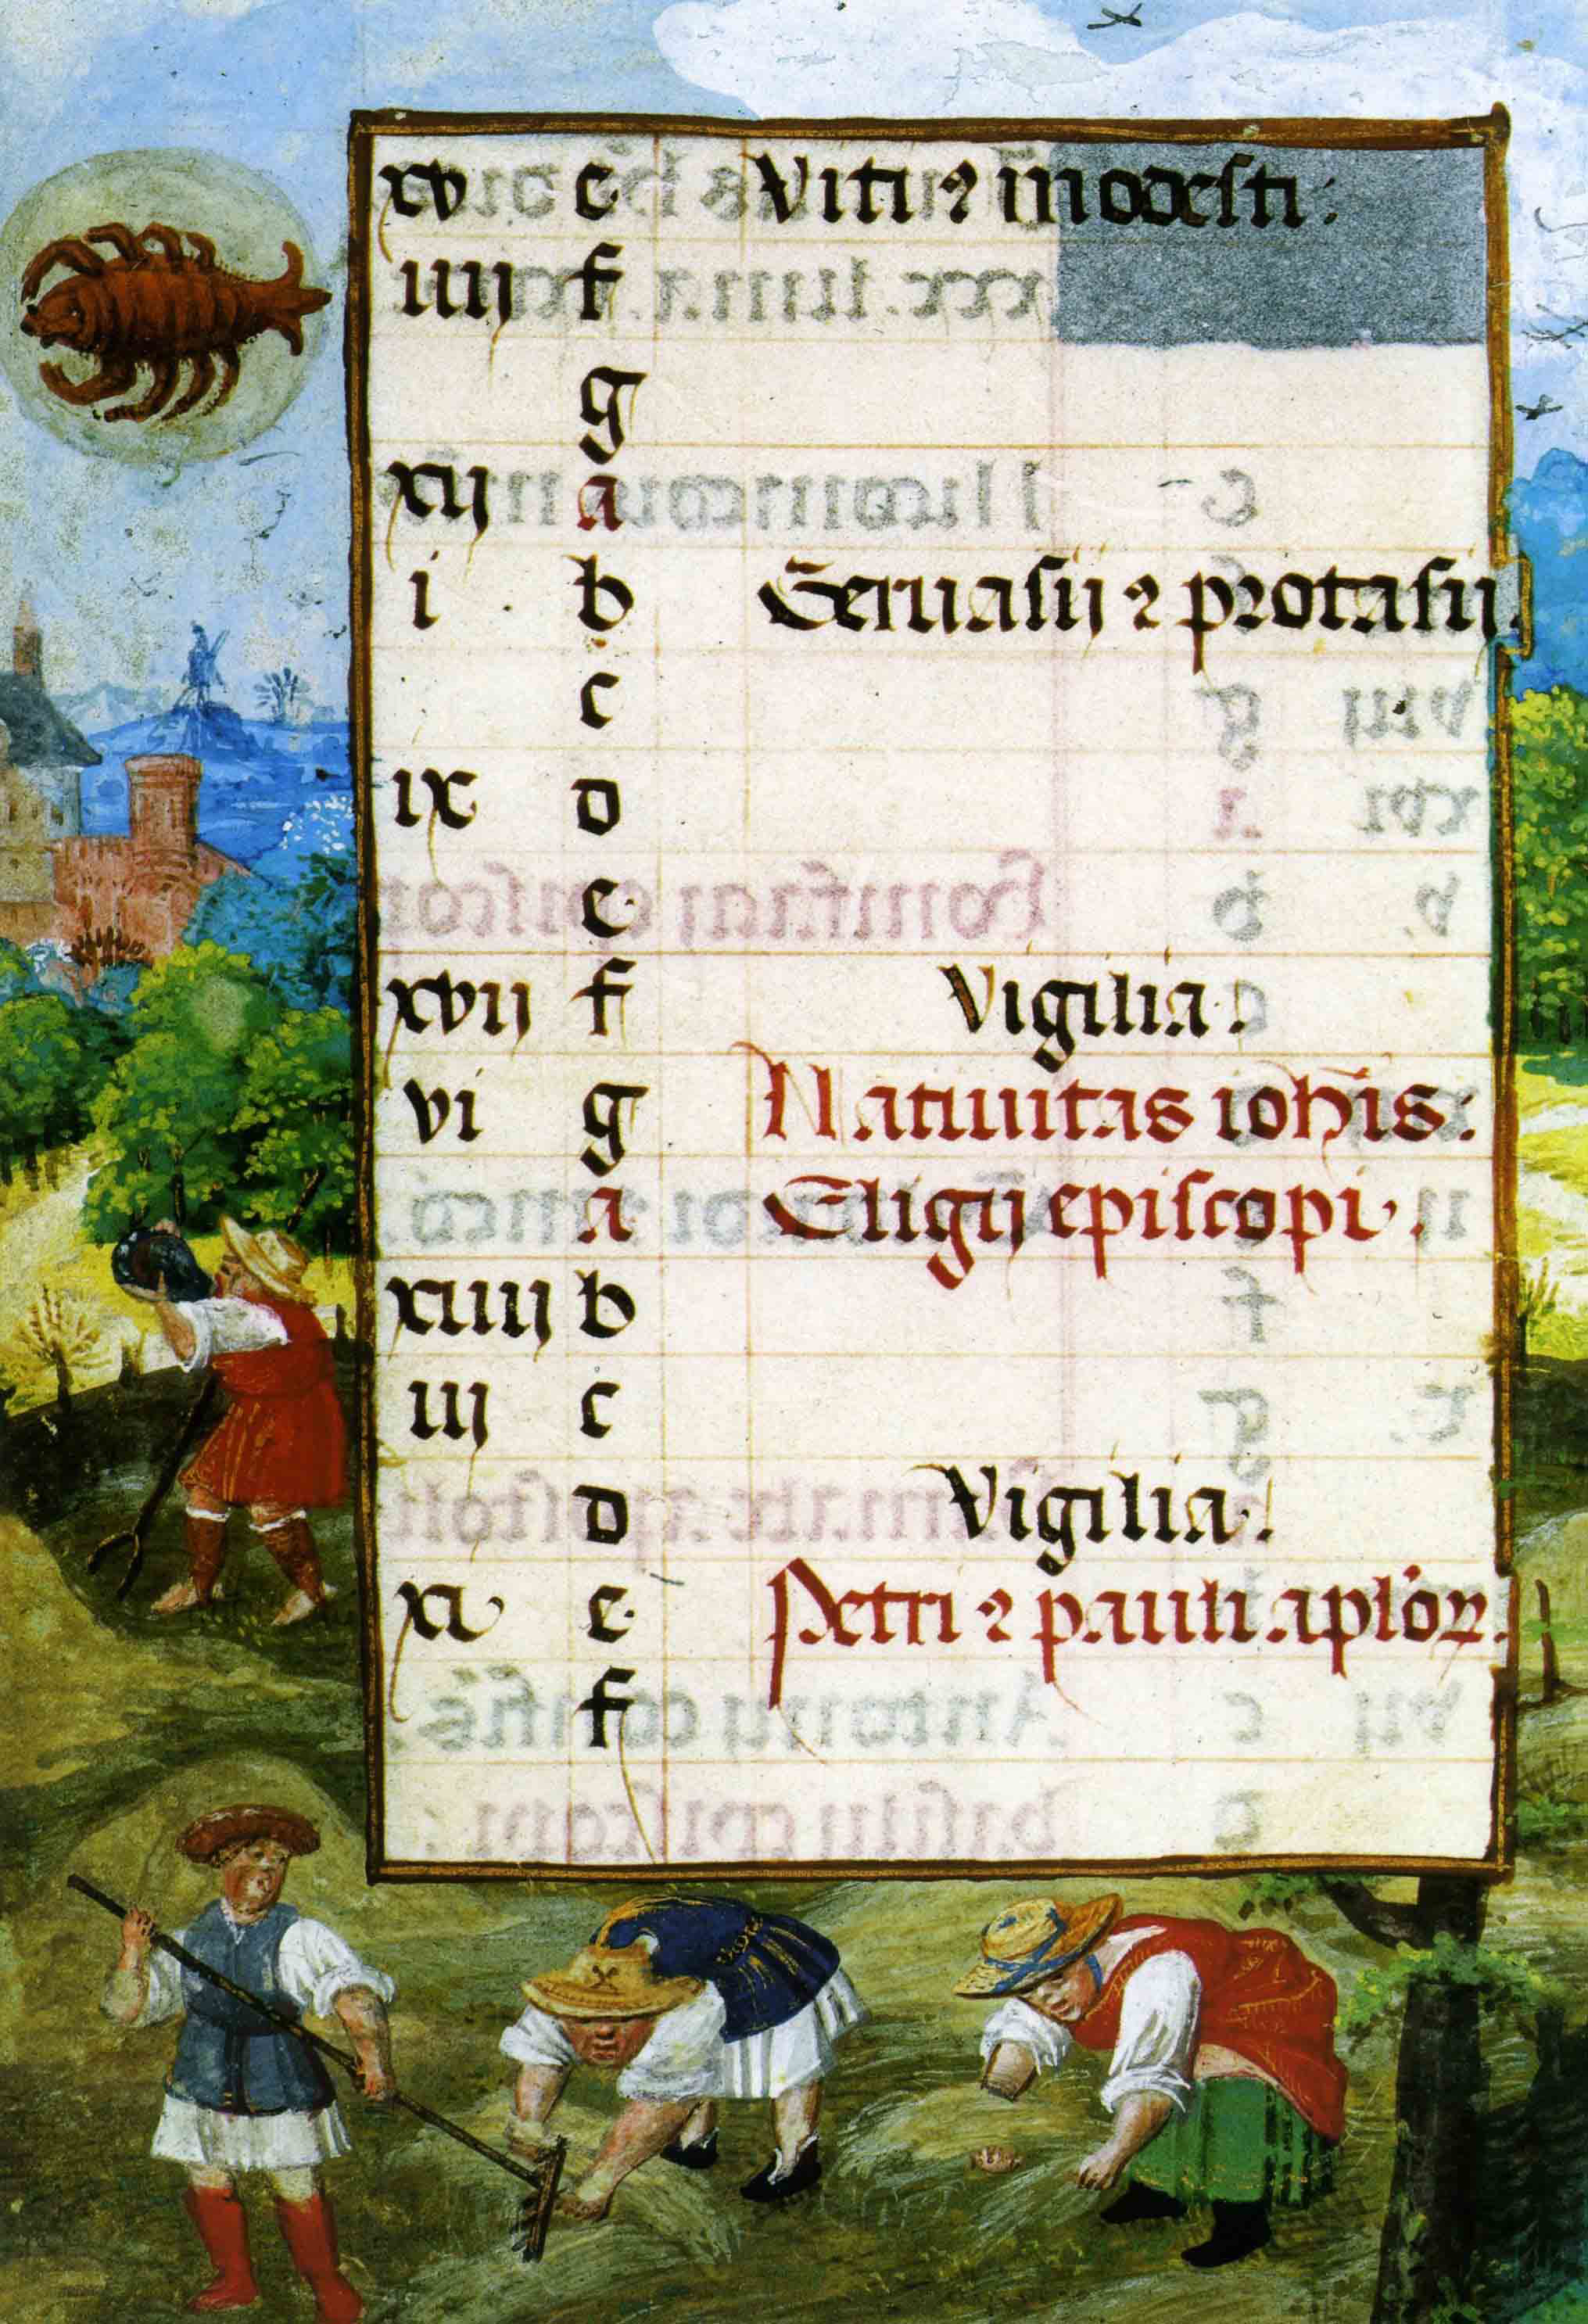 xv e Viti ⁊ modesti:
iiij f
g
xij a
i b Geruasij ⁊ protasij.
c
ix d
e
xvij f Vigilia.
vi g Natiuitas ioh̄is:
a Eligij episcopi.
xiiij b
iij c
d Vigilia.
xi e Petri ⁊ pauli aplo̅ꝝ.
f